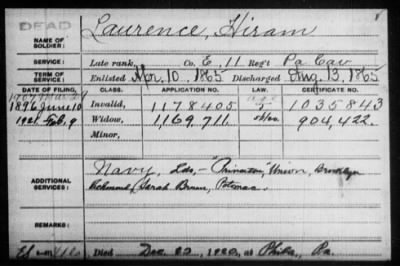 DEAD
NAME OF SOLDIER: Laurence, Hiram
SERVICE: Late rank, Co. E, 11 Reg't Pa Cav
TERM OF SERVICE: Enlisted Apr. 10, 1865 Discharged Aug. 13, 1865
DATE OF FILING. CLASS. APPLICATION NO. LAW. CERTIFICATE NO.
1896 June 10 Invalid, 1178405 1035843
1921 Feb. 9 Widow, 1,169,711 904,422.
Minor,
ADDITIONAL SERVICES: Navy, Lds,- "Princeton," Union, Brooklyn
Sarah Bruen, Potomac
REMARKS:
Died Dec. 1920, at Phila, Pa.